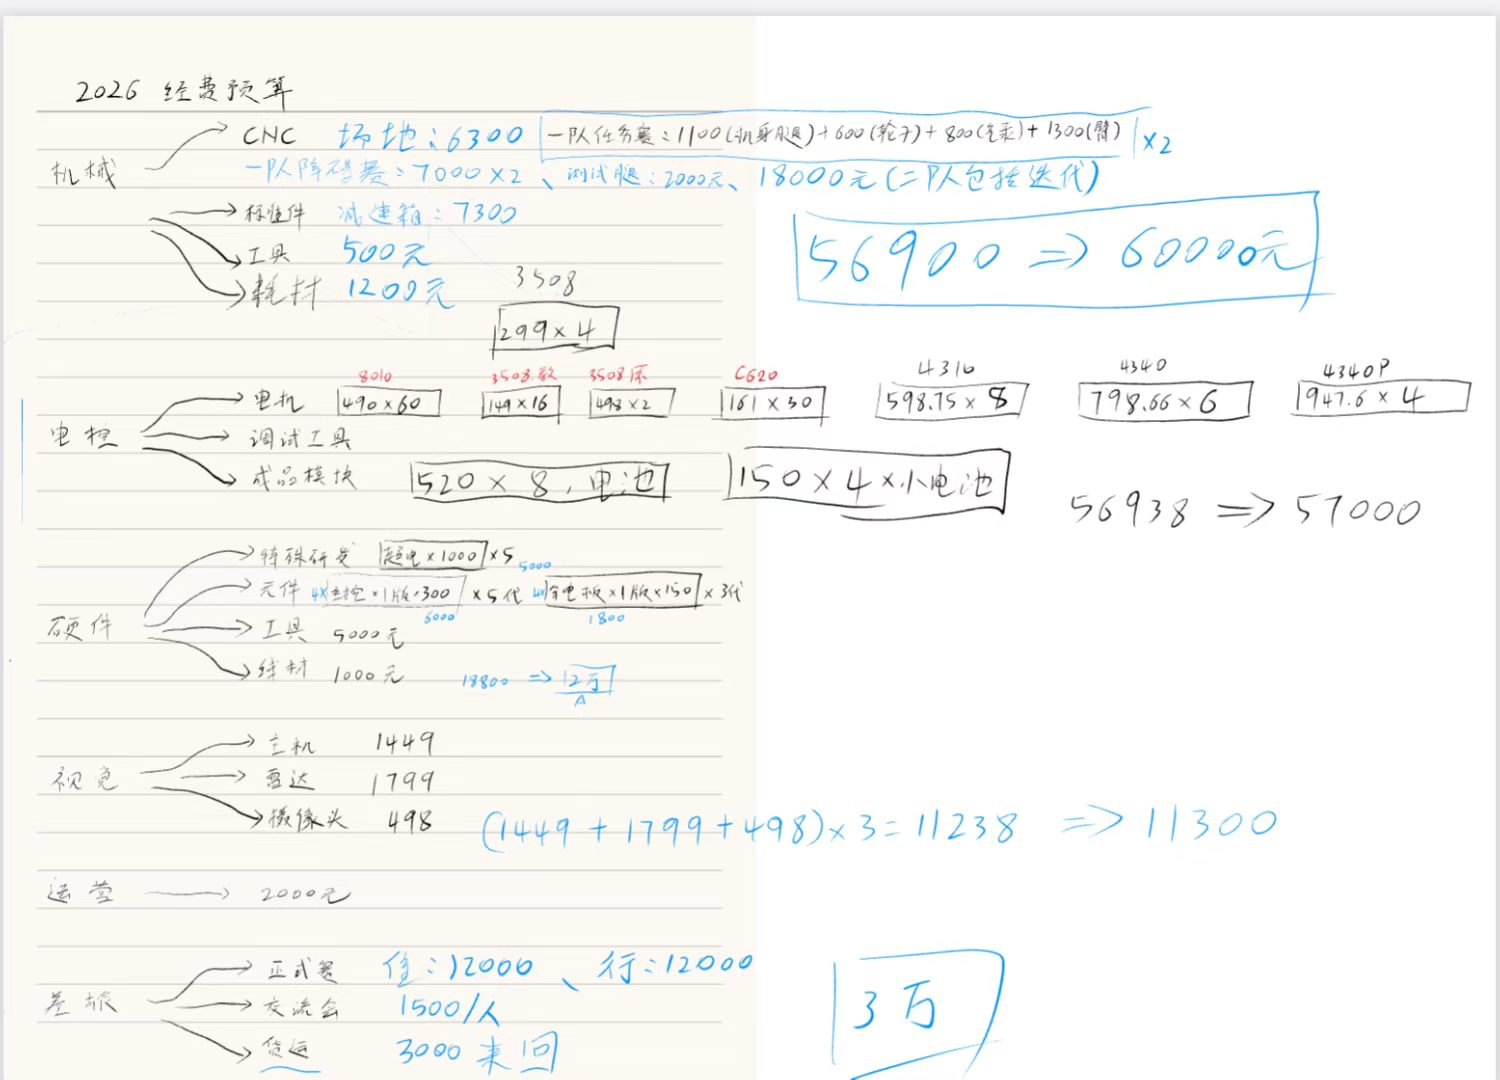 2026 经费预算
机械
CNC 场地：6300 一队任务赛：1100(机身腿)+600(轮子)+800()+1300(臂) ×2
一队障碍赛：7000×2、测试腿：2000元、18000元(二队包括迭代)
标准件 减速箱：7300
工具 500元
耗材 1200元
56900 => 60000元
3508
299×4
电控
8010 3508 3508 C620 4310 4340 4340P
电机 490×60 149×16 498×2 161×30 598.75×8 798.66×6 947.6×4
调试工具
成品模块 520×8，电池 150×4×小电池
56938 => 57000
硬件
特殊研发 超电×1000 ×5 5000
元件 4×主控×1版×300 ×5代 4×电板×1版×150 ×3代
6000 1800
工具 5000元
线材 1000元 18800 => 12万
A
视觉
主机 1449
雷达 1799
摄像头 498 (1449+1799+498)×3=11238 => 11300
运营 2000元
差旅
正式赛 住：12000、行：12000
交流会 1500/人
货运 3000来回
3万